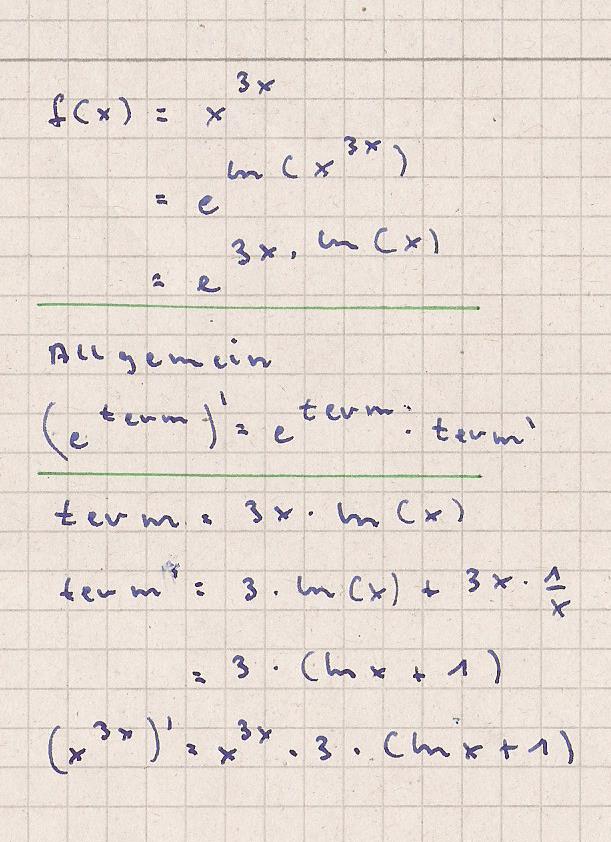 f(x) = x^{3x}
= e^{ln(x^{3x})}
= e^{3x · ln(x)}
Allgemein
(e^{term})' = e^{term} · term'
term = 3x · ln(x)
term' = 3 · ln(x) + 3x · 1/x
= 3 · (ln x + 1)
(x^{3x})' = x^{3x} · 3 · (ln x + 1)